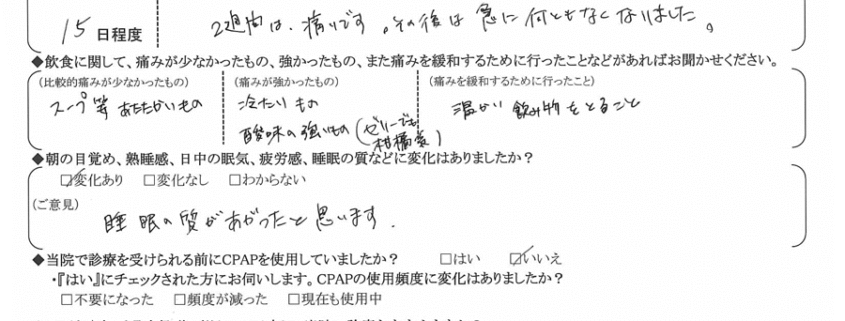 15 日程度 2週間は、痛いです。その後は急に何ともなくなりました。
◆飲食に関して、痛みが少なかったもの、強かったもの、また痛みを緩和するために行ったことなどがあればお聞かせください。
(比較的痛みが少なかったもの) (痛みが強かったもの) (痛みを緩和するために行ったこと)
スープ等 あたたかいもの 冷たい もの 温かい 飲み物をとること
酸味の強いもの(ゼリーでも
柑橘系)
◆朝の目覚め、熟睡感、日中の眠気、疲労感、睡眠の質などに変化はありましたか?
☑変化あり □変化なし □わからない
(ご意見)
睡眠の質があがったと思います.
◆当院で診療を受けられる前にCPAPを使用していましたか? □はい ☑いいえ
・『はい』にチェックされた方にお伺いします。CPAPの使用頻度に変化はありましたか?
□不要になった □頻度が減った □現在も使用中